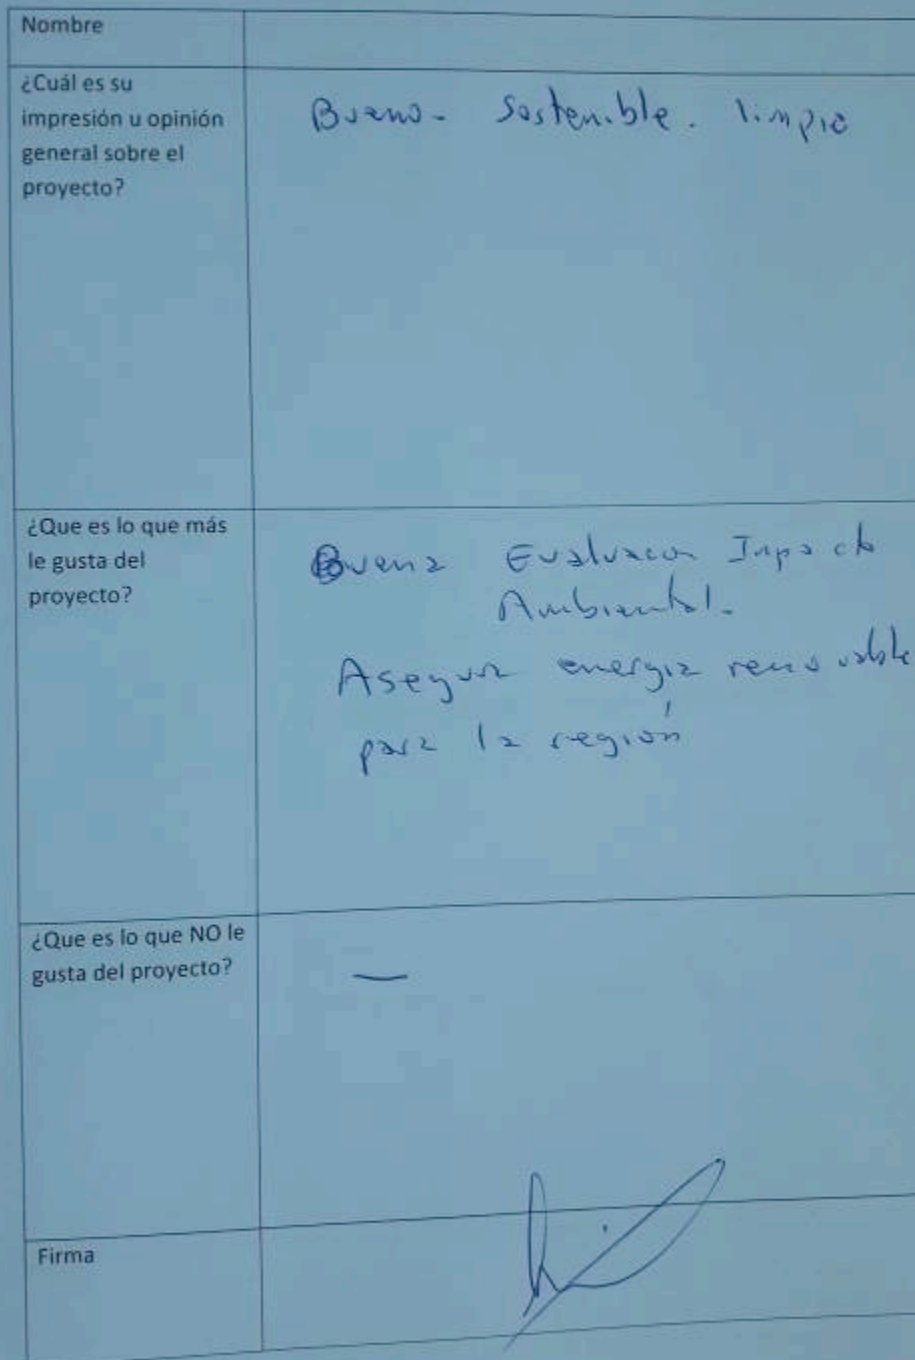 Nombre
¿Cuál es su
impresión u opinión
general sobre el
proyecto?
Bueno - Sostenible. limpio
¿Que es lo que más
le gusta del
proyecto?
Buena Evaluacon Impacto
Ambiental.
Asegura energia renovable
para la región
¿Que es lo que NO le
gusta del proyecto?
—
Firma